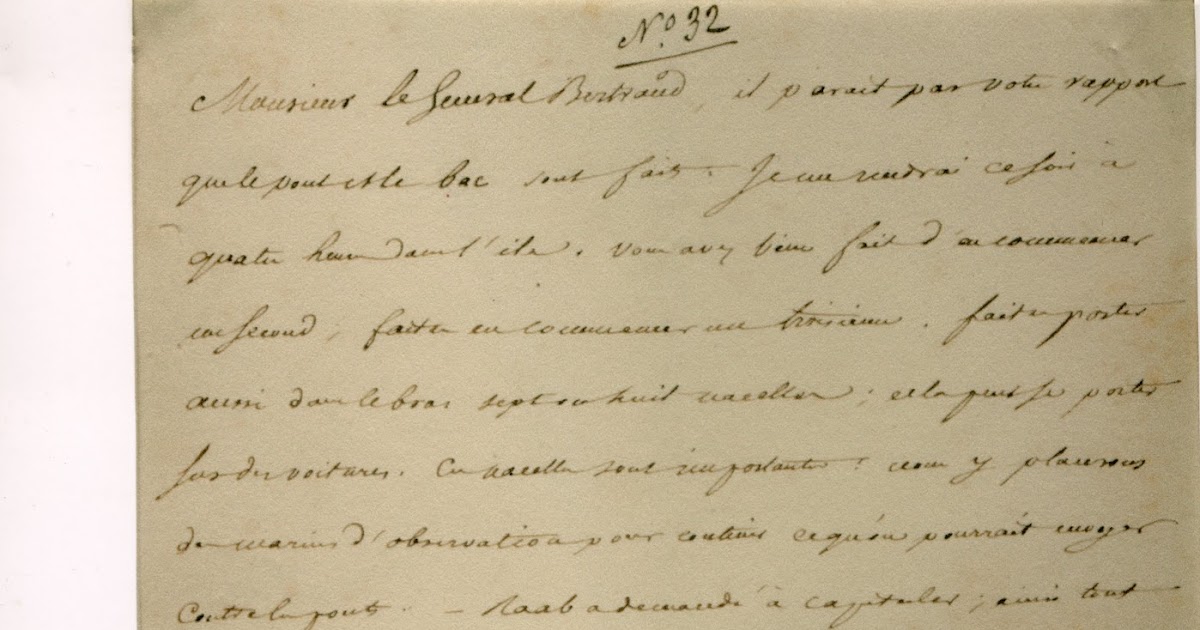 N.º 32
Monsieur le Général Bertrand, il parait par votre rapport
que le pont et le bac sont faits. Je me rendrai ce soir à
quatre heures dans l'île. Vous avez bien fait d'en commencer
un second, faites en commencer un troisième. faites porter
aussi dans le bras sept ou huit nacelles ; cela peut se porter
sur des voitures. Ces nacelles sont importantes : nous y placerons
des marins d'observation pour contenir ce qu'on pourrait envoyer
contre les ponts. — Raab a demandé à capituler ; ainsi tout